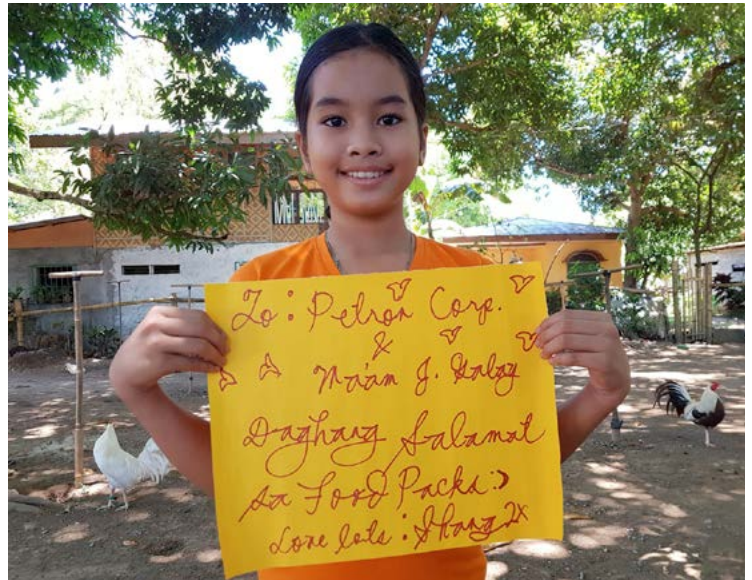 To: Petron Corp.
&
Ma'am J. Galay
Daghang Salamat
sa Food Packs :)
Love lots : Shang2x